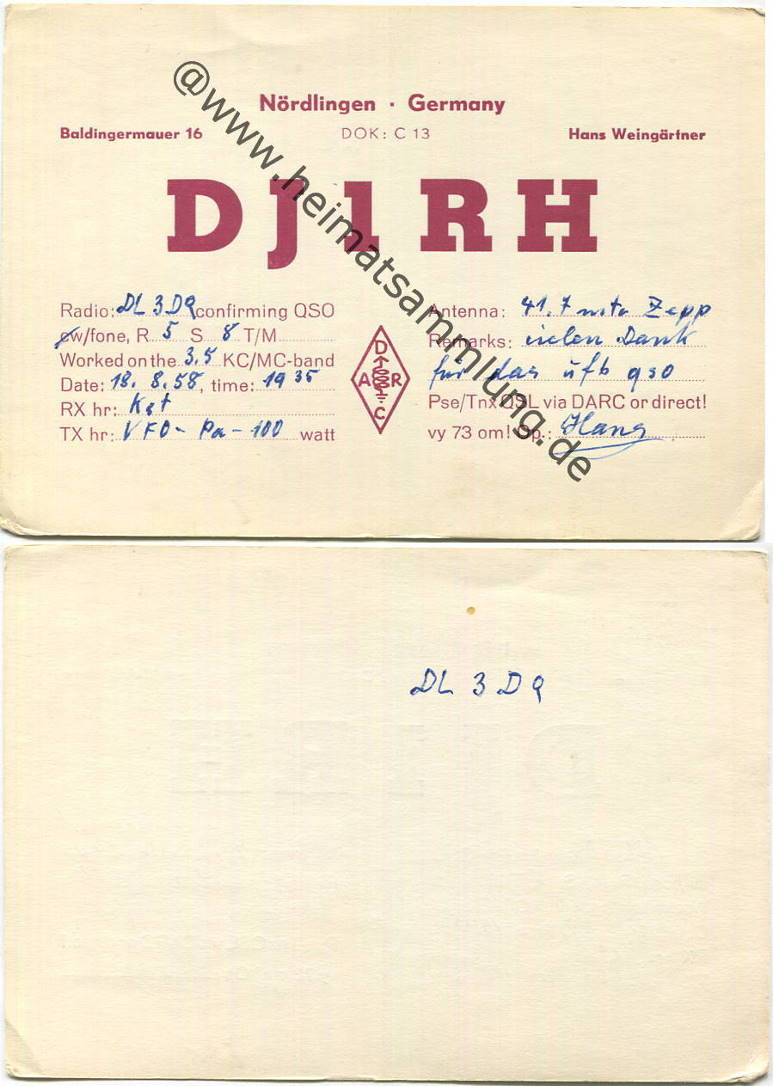 Nördlingen · Germany
Baldingermauer 16 DOK: C 13 Hans Weingärtner
DJ1RH
Radio: DL 3 DQ confirming QSO
cw/fone, R 5 S 8 T/M
Worked on the 3,5 KC/MC-band
Date: 18. 8. 58, time: 19 35
RX hr: Kst
TX hr: VFO - Pa - 100 watt
DARC
Antenna: 41,7 mtr Zepp
Remarks: vielen Dank
für das ufb qso
Pse/Tnx QSL via DARC or direct!
vy 73 om! Op.: Hans
@www.heimatsammlung.de
DL 3 DQ